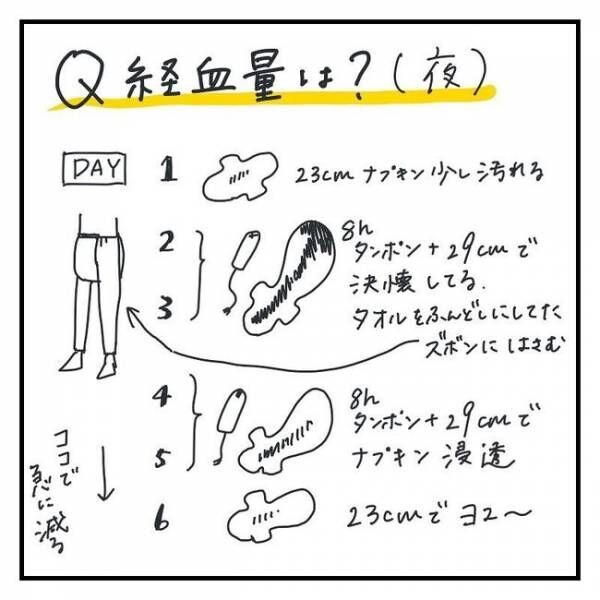 Q 経血量は?(夜)
DAY
1 23cm ナプキン少し汚れる
2
3
8h
タンポン+29cmで
決壊してる.
タオルをふんどしにしてた
ズボンにはさむ
4
5
8h
タンポン+29cmで
ナプキン 浸透
ココで
急に減る
6 23cmで ヨユ〜